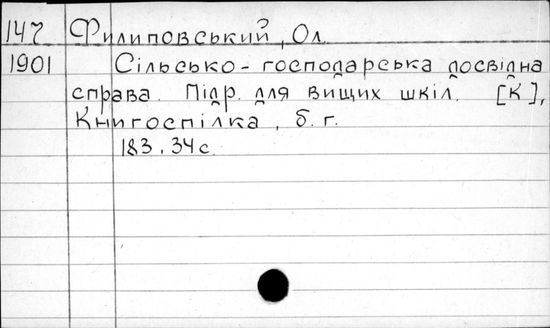 147 Филиповський, Ол.
1901 Сільсько-господарська досвідна
справа. Підр. для вищих шкіл. [К],
Книгоспілка, б. г.
183, 34 с.